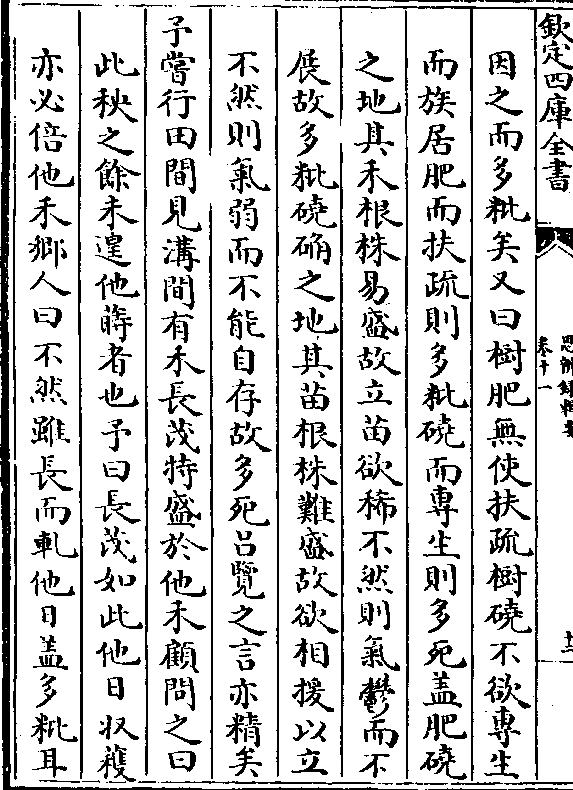 欽定四庫全書
思辨録輯要
卷十一
十三
因之而多粃矣又曰樹肥無使扶疏樹磽不欲専生
而族居肥而扶疏則多粃磽而専生則多死盖肥磽
之地其禾根株易盛故立苗欲稀不然則氣鬱而不
展故多粃磽确之地其苗根株難盛故欲相援以立
不然則氣弱而不能自存故多死吕覽之言亦精矣
予嘗行田間見溝間有禾長茂特盛於他禾顧問之曰
此秧之餘未遑他蒔者也予曰長茂如此他日収穫
亦必倍他禾鄉人曰不然雖長而軋他日盖多粃耳